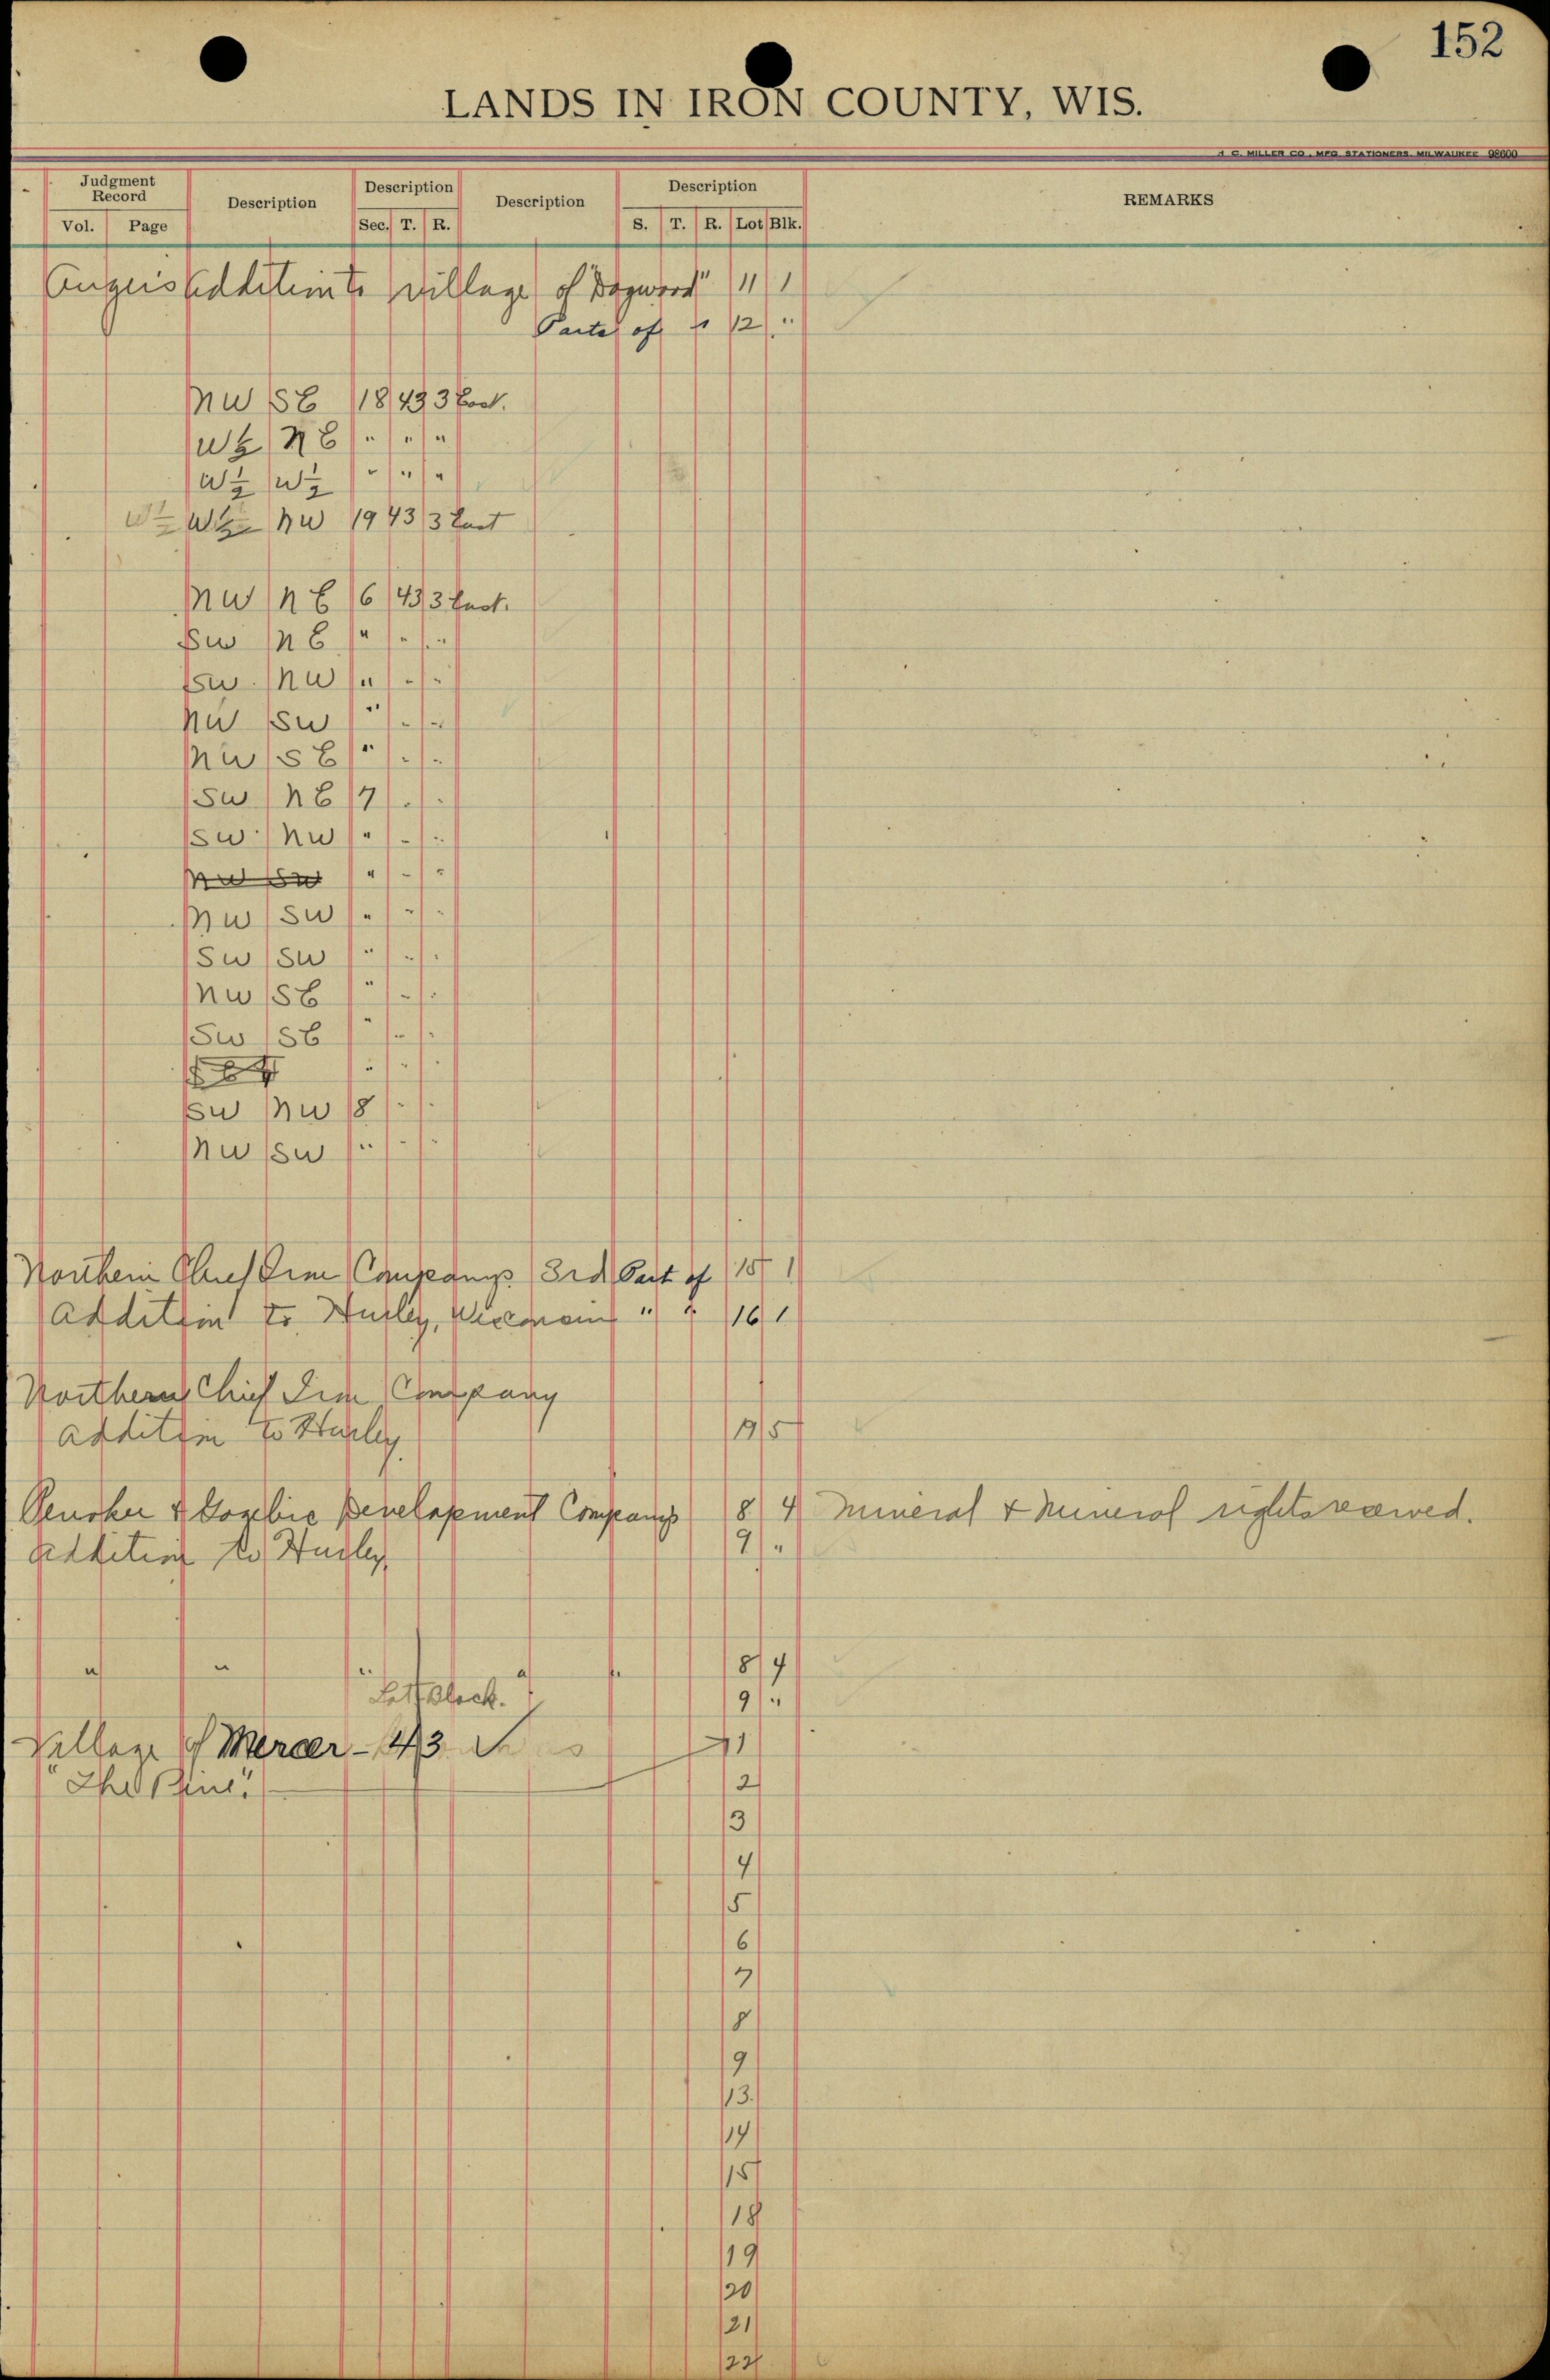 152
LANDS IN IRON COUNTY, WIS.
H. C. MILLER CO., MFG. STATIONERS, MILWAUKEE 98600
Judgment Record Description Description Description Description REMARKS
Vol. Page Sec. T. R. S. T. R. Lot Blk.
Addition to village of 11 1
Parts of " 12 "
NW SE 18 43 3 East.
NE " " "
W½ W½ " " "
W½ NW 19 43 3 East
NW NE 6 43 3 East.
SW NE " " "
SW NW " " "
NW SW " " "
NW SE " " "
SW NE 7 " "
SW NW " " "
NW SW " " "
NW SW " " "
SW SW " " "
NW SE " " "
SW SE " " "
" " "
SW NW 8 " "
NW SW " " "
Northern Chief Iron Companys 3rd Part of 15 1
Addition to Hurley, Wisconsin " " 16 1
Northern Chief Iron Company
Addition to Hurley. 19 5
Penokee & Gogebic Development Companys 8 4 Mineral & Mineral rights reserved.
Addition to Hurley, 9 "
" " " " " 8 4
Lot Block. 9 "
Village of Mercer - 43 1
"The Pine" 2
3
4
5
6
7
8
9
13
14
15
18
19
20
21
22